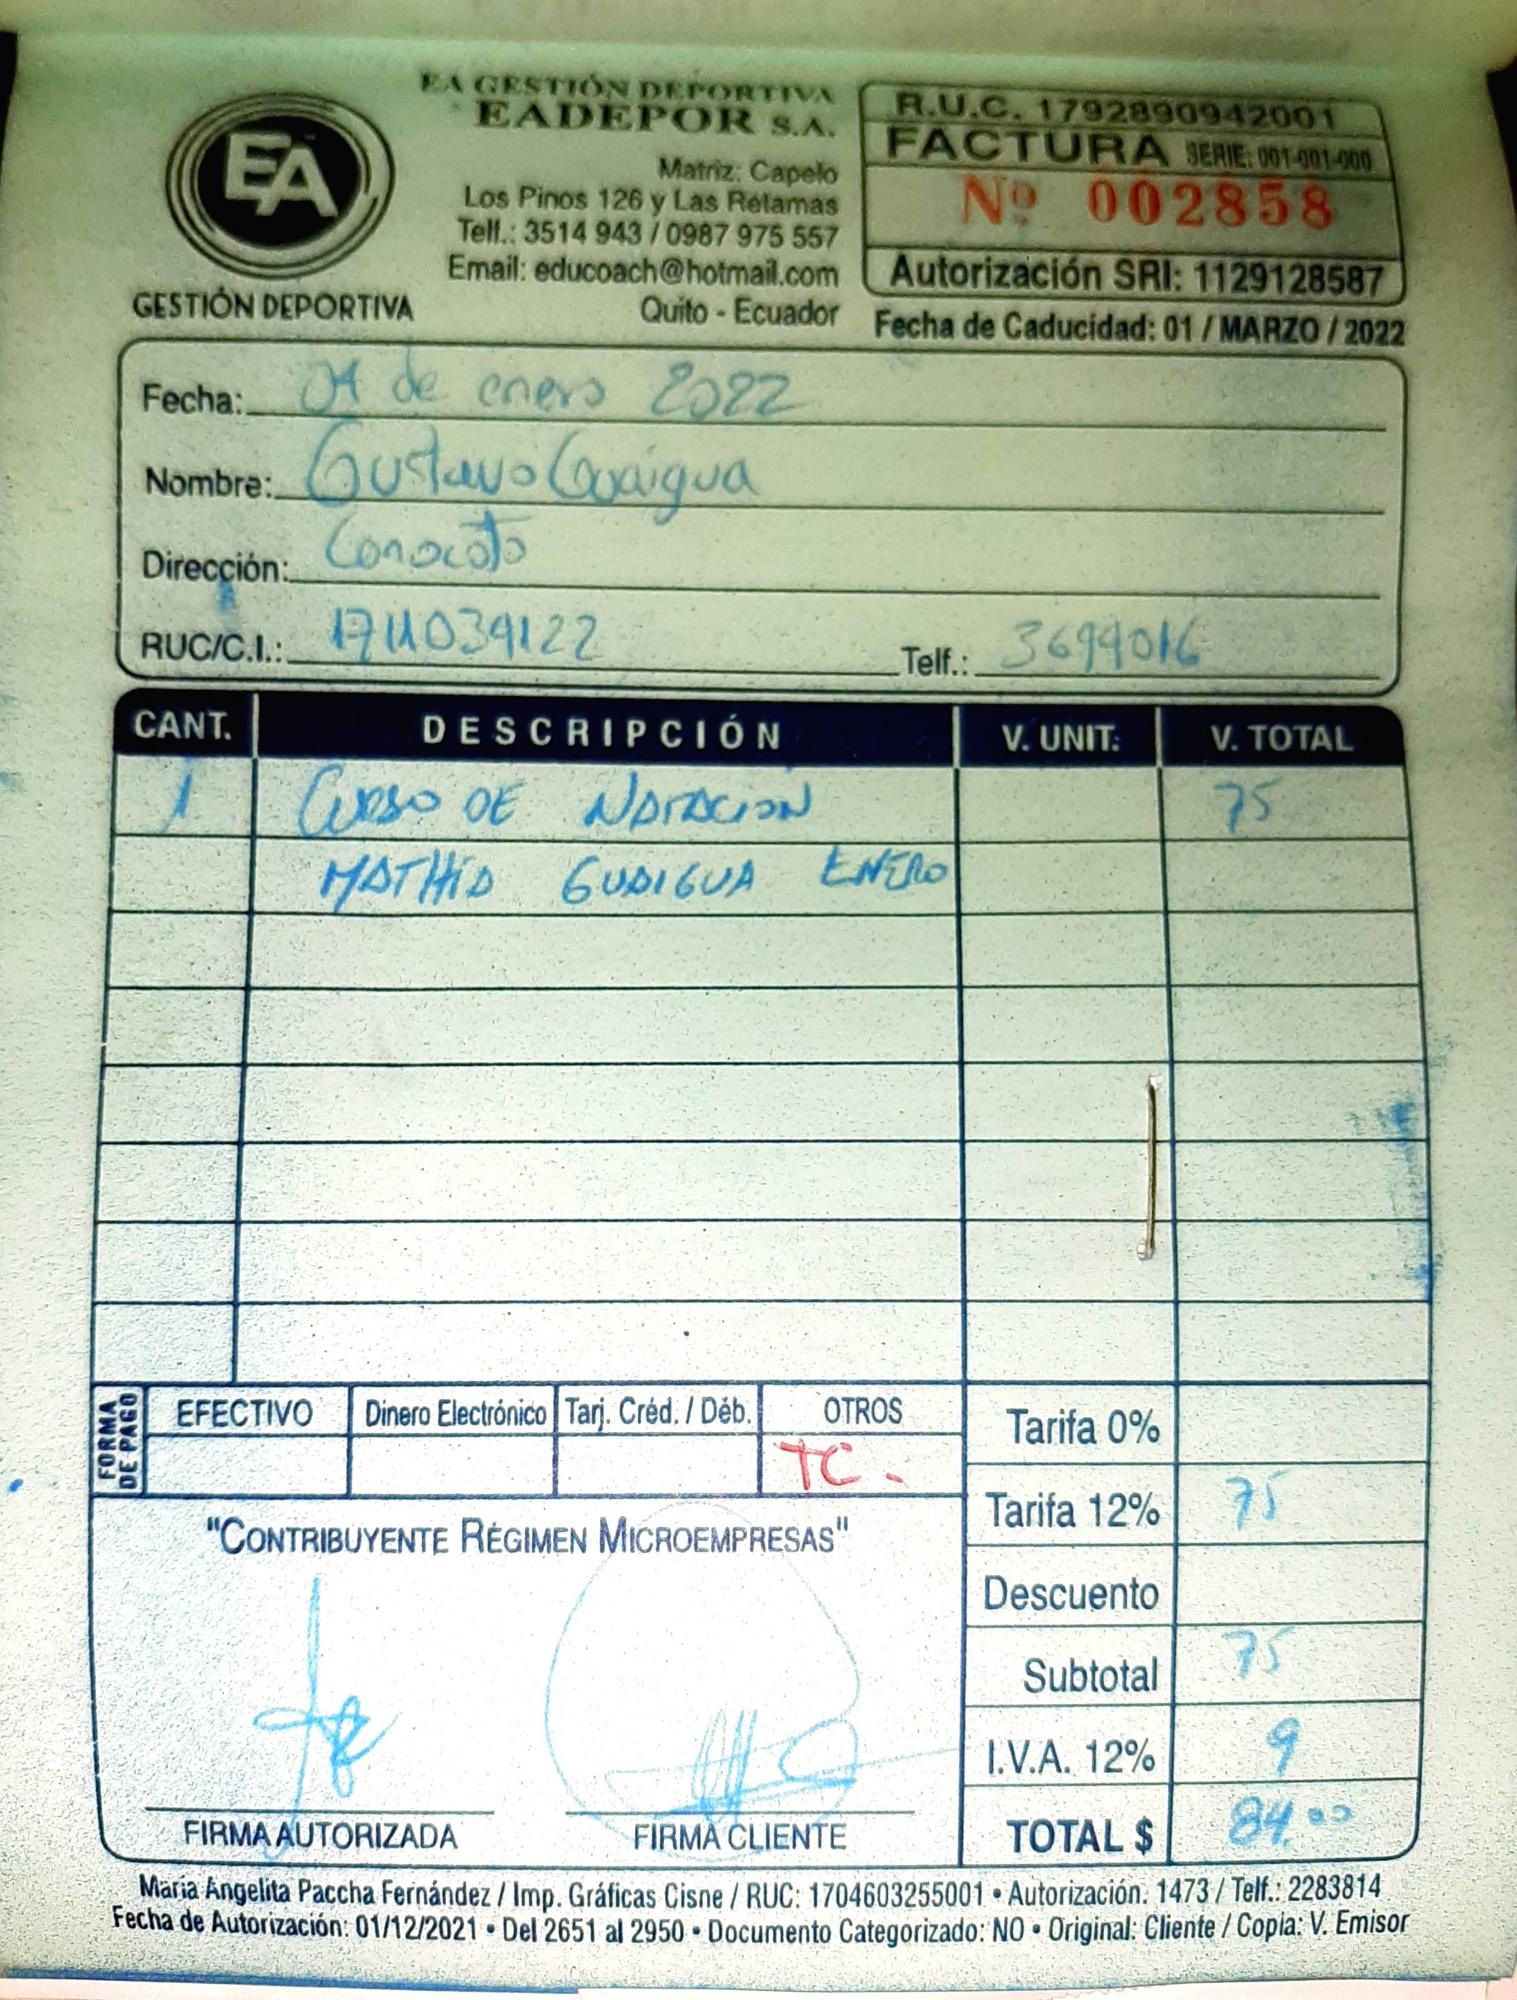 EA
GESTIÓN DEPORTIVA
EA GESTIÓN DEPORTIVA
EADEPOR S.A.
Matriz: Capelo
Los Pinos 126 y Las Retamas
Telf.: 3514 943 / 0987 975 557
Email: educoach@hotmail.com
Quito - Ecuador
R.U.C. 1792890942001
FACTURA SERIE: 001-001-000
Nº 002858
Autorización SRI: 1129128587
Fecha de Caducidad: 01 / MARZO / 2022
Fecha: 04 de enero 2022
Nombre: Gustavo Guaigua
Dirección: Conocoto
RUC/C.I.: 1711039122 Telf.: 3699016
CANT. DESCRIPCIÓN V. UNIT. V. TOTAL
1 CURSO DE NATACION 75
MATHIA GUAIGUA ENERO
FORMA DE PAGO
EFECTIVO Dinero Electrónico Tarj. Créd. / Déb. OTROS
TC.
Tarifa 0%
Tarifa 12% 75
Descuento
Subtotal 75
I.V.A. 12% 9
TOTAL $ 84.00
"CONTRIBUYENTE RÉGIMEN MICROEMPRESAS"
FIRMA AUTORIZADA FIRMA CLIENTE
Maria Angelita Paccha Fernández / Imp. Gráficas Cisne / RUC: 1704603255001 • Autorización. 1473 / Telf.: 2283814
Fecha de Autorización: 01/12/2021 • Del 2651 al 2950 • Documento Categorizado: NO • Original: Cliente / Copia: V. Emisor